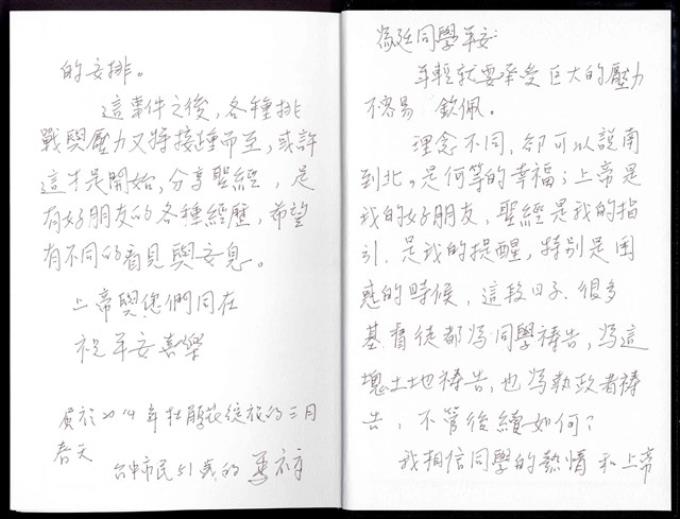 為廷同學平安:
年輕就要承受巨大的壓力
不容易 欽佩。
理念不同,卻可以說南
到北,是何等的幸福;上帝是
我的好朋友,聖經是我的指
引、是我的提醒,特別是困
惑的時候,這段日子、很多
基督徒都為同學禱告,為這
塊土地禱告,也為執政者禱
告,不管後續如何?
我相信同學的熱情和上帝
的安排。
這事件之後,各種挑
戰與壓力又將接踵而至,或許
這才是開始,分享聖經,是
有好朋友的各種經歷,希望
有不同的看見與安息。
上帝與您們同在
祝平安喜樂
於2014年杜鵑花綻放的三月
春天
台中市民51歲的